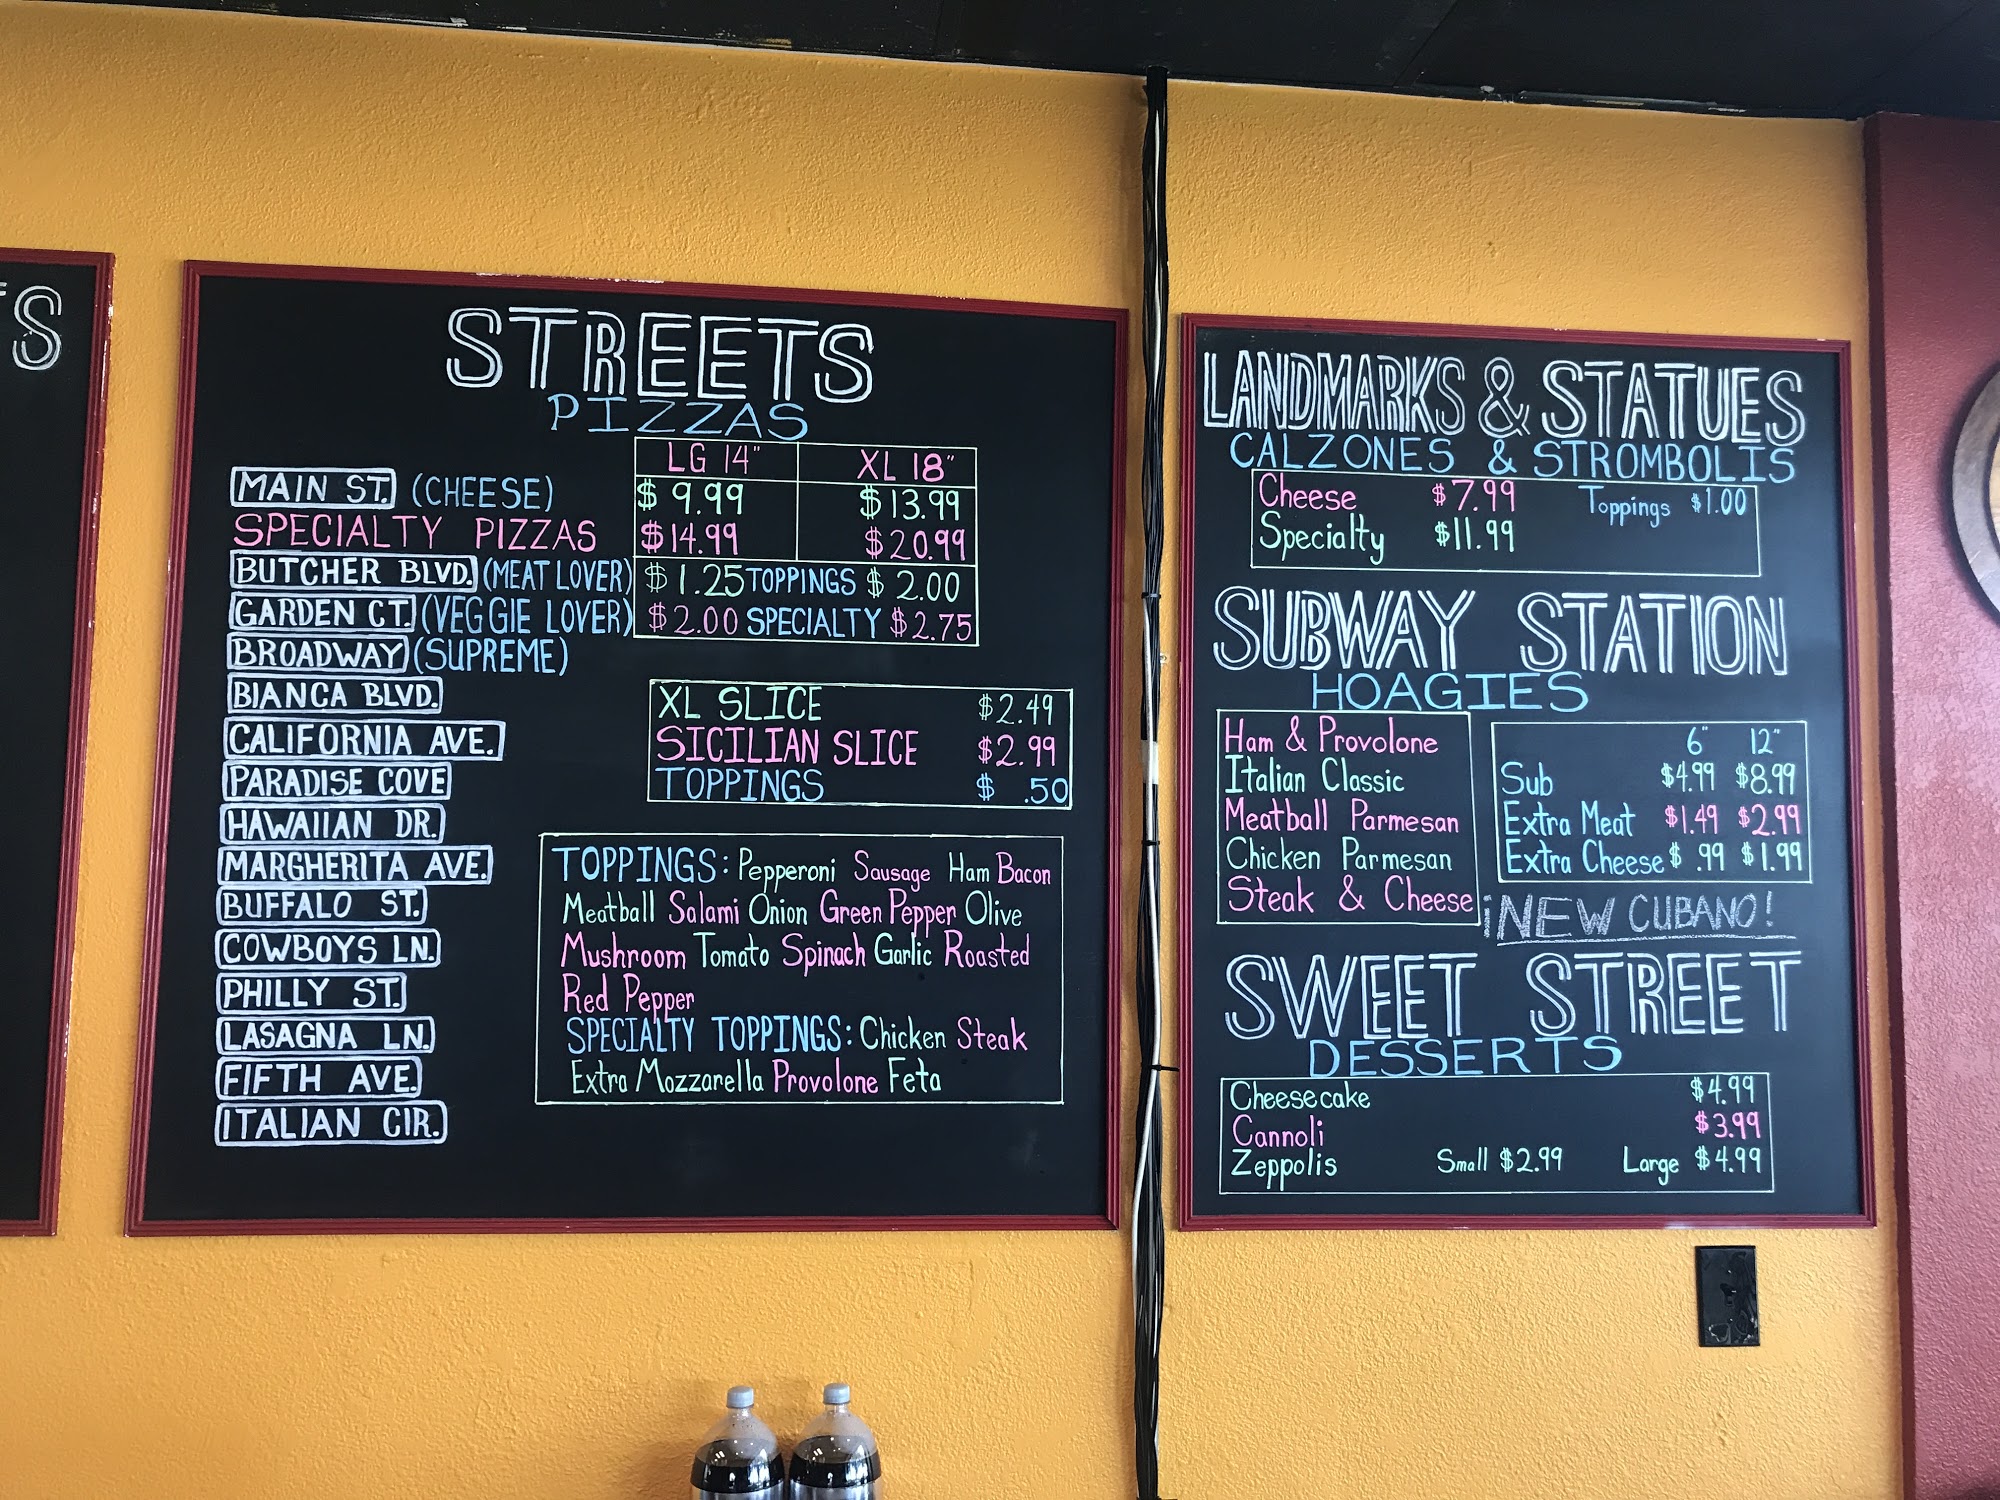 STREETS
PIZZAS
LG 14" XL 18"
MAIN ST. (CHEESE) $ 9.99 $13.99
SPECIALTY PIZZAS $14.99 $20.99
BUTCHER BLVD. (MEAT LOVER) $1.25 TOPPINGS $ 2.00
GARDEN CT. (VEGGIE LOVER) $2.00 SPECIALTY $2.75
BROADWAY (SUPREME)
BIANCA BLVD.
CALIFORNIA AVE.
PARADISE COVE
HAWAIIAN DR.
MARGHERITA AVE.
BUFFALO ST.
COWBOYS LN.
PHILLY ST.
LASAGNA LN.
FIFTH AVE.
ITALIAN CIR.
XL SLICE $2.49
SICILIAN SLICE $2.99
TOPPINGS $ .50
TOPPINGS: Pepperoni Sausage Ham Bacon
Meatball Salami Onion Green Pepper Olive
Mushroom Tomato Spinach Garlic Roasted
Red Pepper
SPECIALTY TOPPINGS: Chicken Steak
Extra Mozzarella Provolone Feta
LANDMARKS & STATUES
CALZONES & STROMBOLIS
Cheese $7.99 Toppings $1.00
Specialty $11.99
SUBWAY STATION
HOAGIES
Ham & Provolone
Italian Classic
Meatball Parmesan
Chicken Parmesan
Steak & Cheese
6" 12"
Sub $4.99 $8.99
Extra Meat $1.49 $2.99
Extra Cheese $ .99 $1.99
¡NEW CUBANO!
SWEET STREET
DESSERTS
Cheesecake $4.99
Cannoli $3.99
Zeppolis Small $2.99 Large $4.99